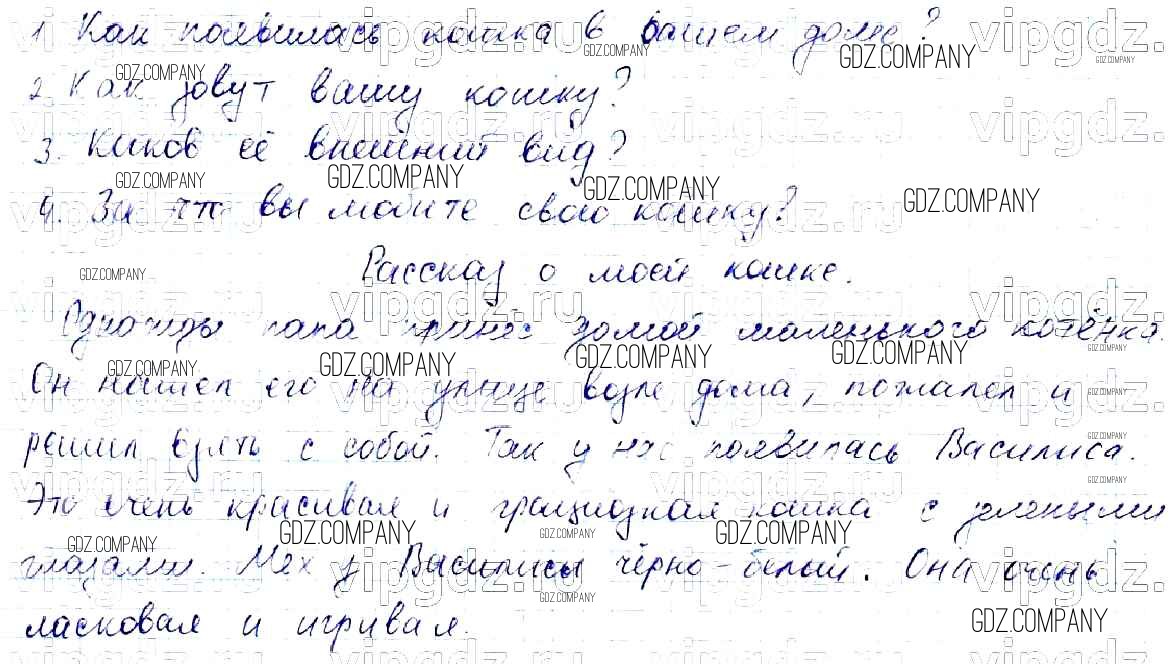 1 Как появилась кошка в вашем доме?
2. Как зовут вашу кошку?
3. Каков её внешний вид?
4. За что вы любите свою кошку?
Рассказ о моей кошке.
Однажды папа принёс домой маленького котёнка.
Он нашел его на улице возле дома, пожалел и
решил взять с собой. Так у нас появилась Василиса.
Это очень красивая и грациозная кошка с зелеными
глазами. Мех у Василисы чёрно-белый. Она очень
ласковая и игривая.